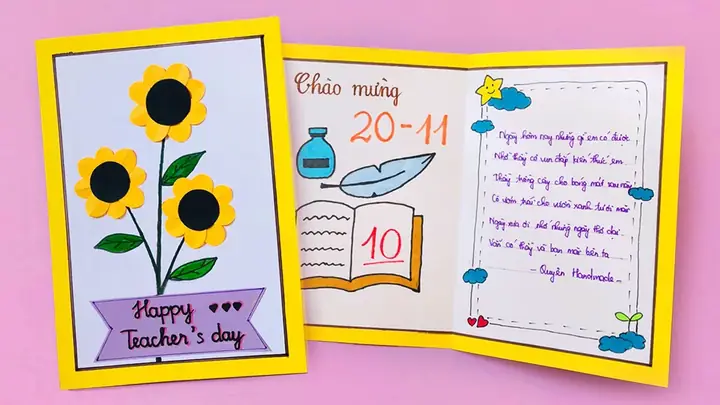 Happy
Teacher's day
Chào mừng
20-11
10
Ngày hôm nay những gì em có được
Nhờ thầy cô vun đắp kiến thức em
Thầy trồng cây cho bóng mát sau này
Cô vươn trái cho vườn xanh tươi mãi
Ngày xưa ơi nhớ những ngày thơ dại
Vẫn có thầy và bạn mãi bên ta
- Quyên Handmade -